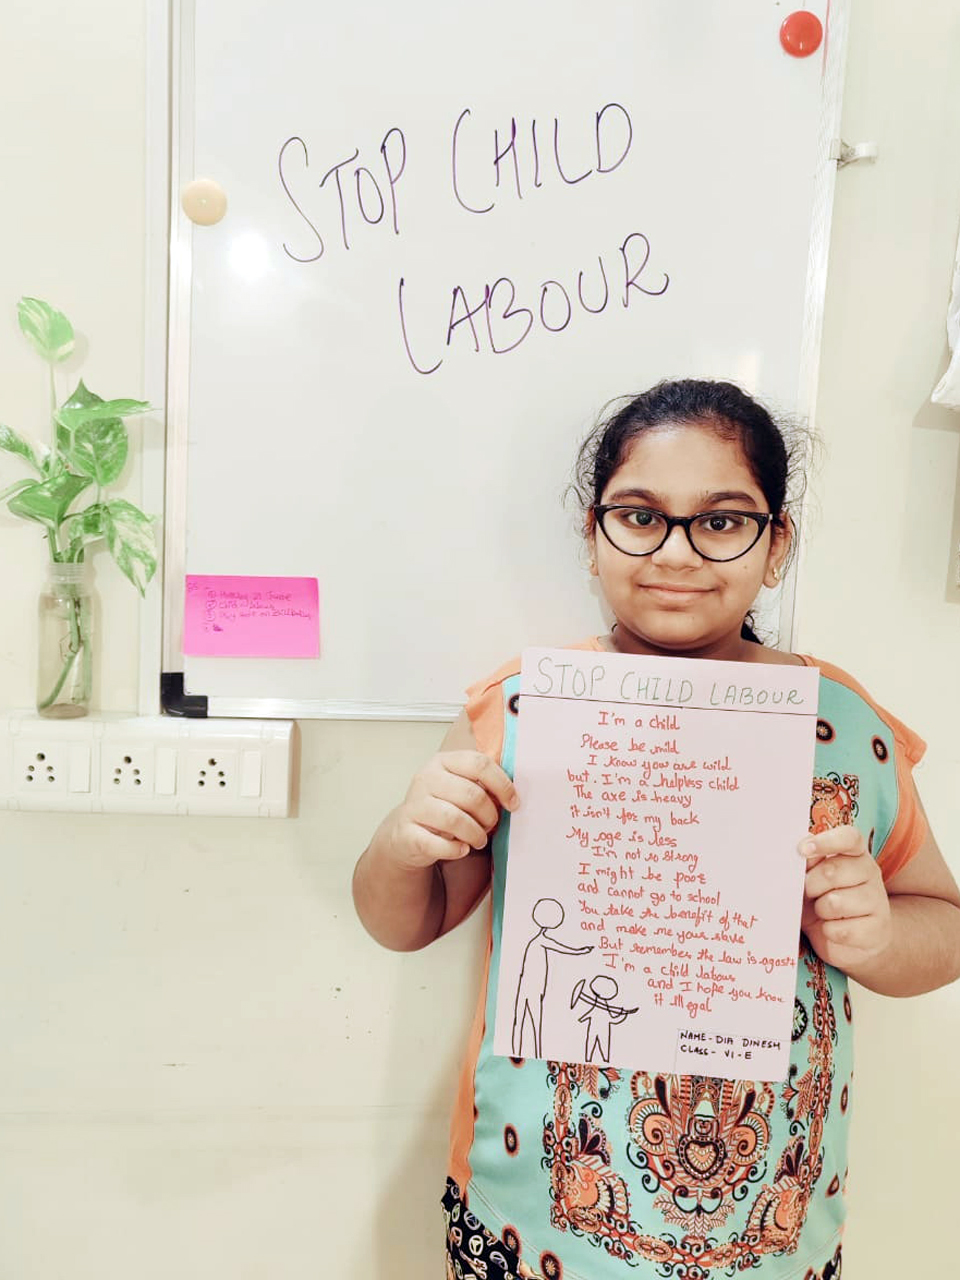 STOP CHILD
LABOUR
STOP CHILD LABOUR
I'm a child
Please be mild
I know you are wild
but. I'm a helpless child
The axe is heavy
it isn't for my back
My age is less
I'm not so strong
I might be poor
and cannot go to school
You take the benefit of that
and make me your slave
But remember the law is against
I'm a child labour
and I hope you know
it illegal
NAME- DIA DINESH
CLASS- VI-E